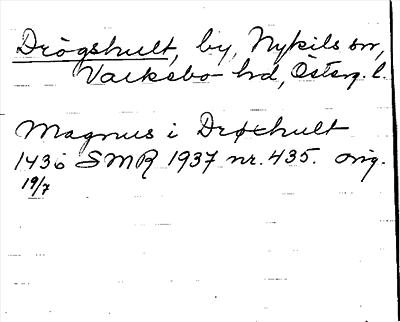 Drögshult, by, Nykils sn,
Valkebo hd, Österg. l.
Magnus i Drøxhult
1436 SMR 1937 nr. 435. orig.
19/7